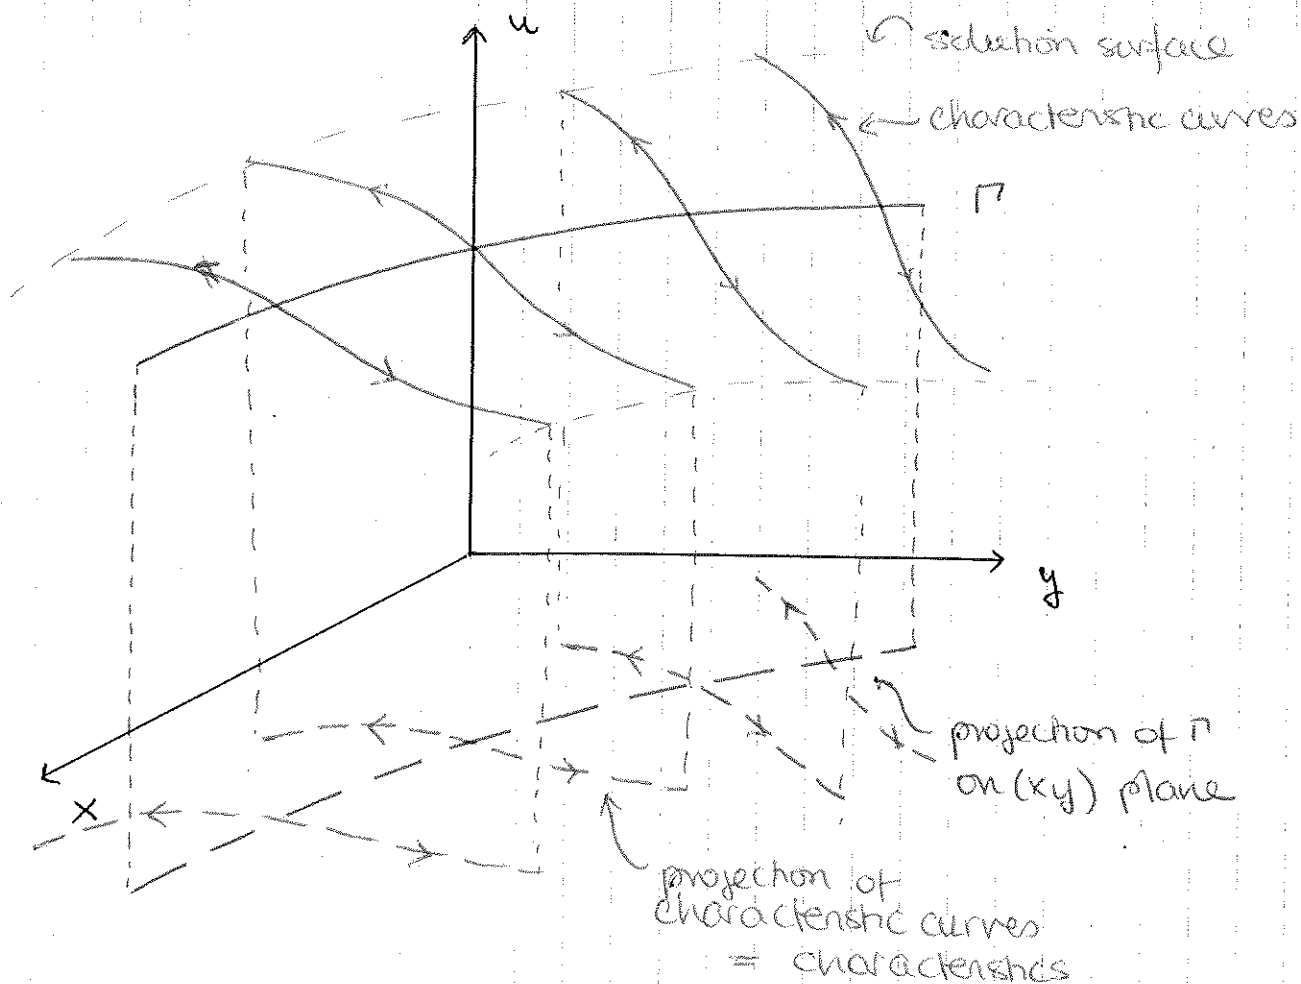 u
solution surface
characteristic curves
Γ
y
x
projection of Γ
on (xy) plane
projection of
characteristic curves
= characteristics